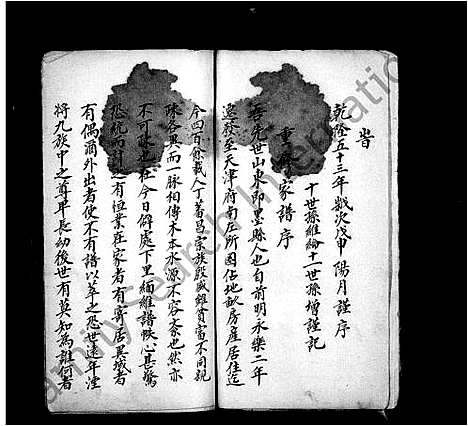 旹
乾隆五十三年歲次戊申陽月謹序
重 家譜序
十世孫維綸十一世孫增謹記
吾先世山東即墨縣人也自前明永樂二年
遷 至天津府南左所因佔地畝房產居住迄
今四百餘載人丁蕃昌宗族殷盛雖貧富不同親
踈各異而一脉相傳木本水源不容紊也然亦
不可 也在今日解處下里緬維譜 心甚驚
恐統而計之有恒業在家者有寄居異域者
有偶爾外出者使不有譜以萃之恐世遠年湮
將九族中之尊卑長幼後世有莫知為誰何者
FamilySearch International